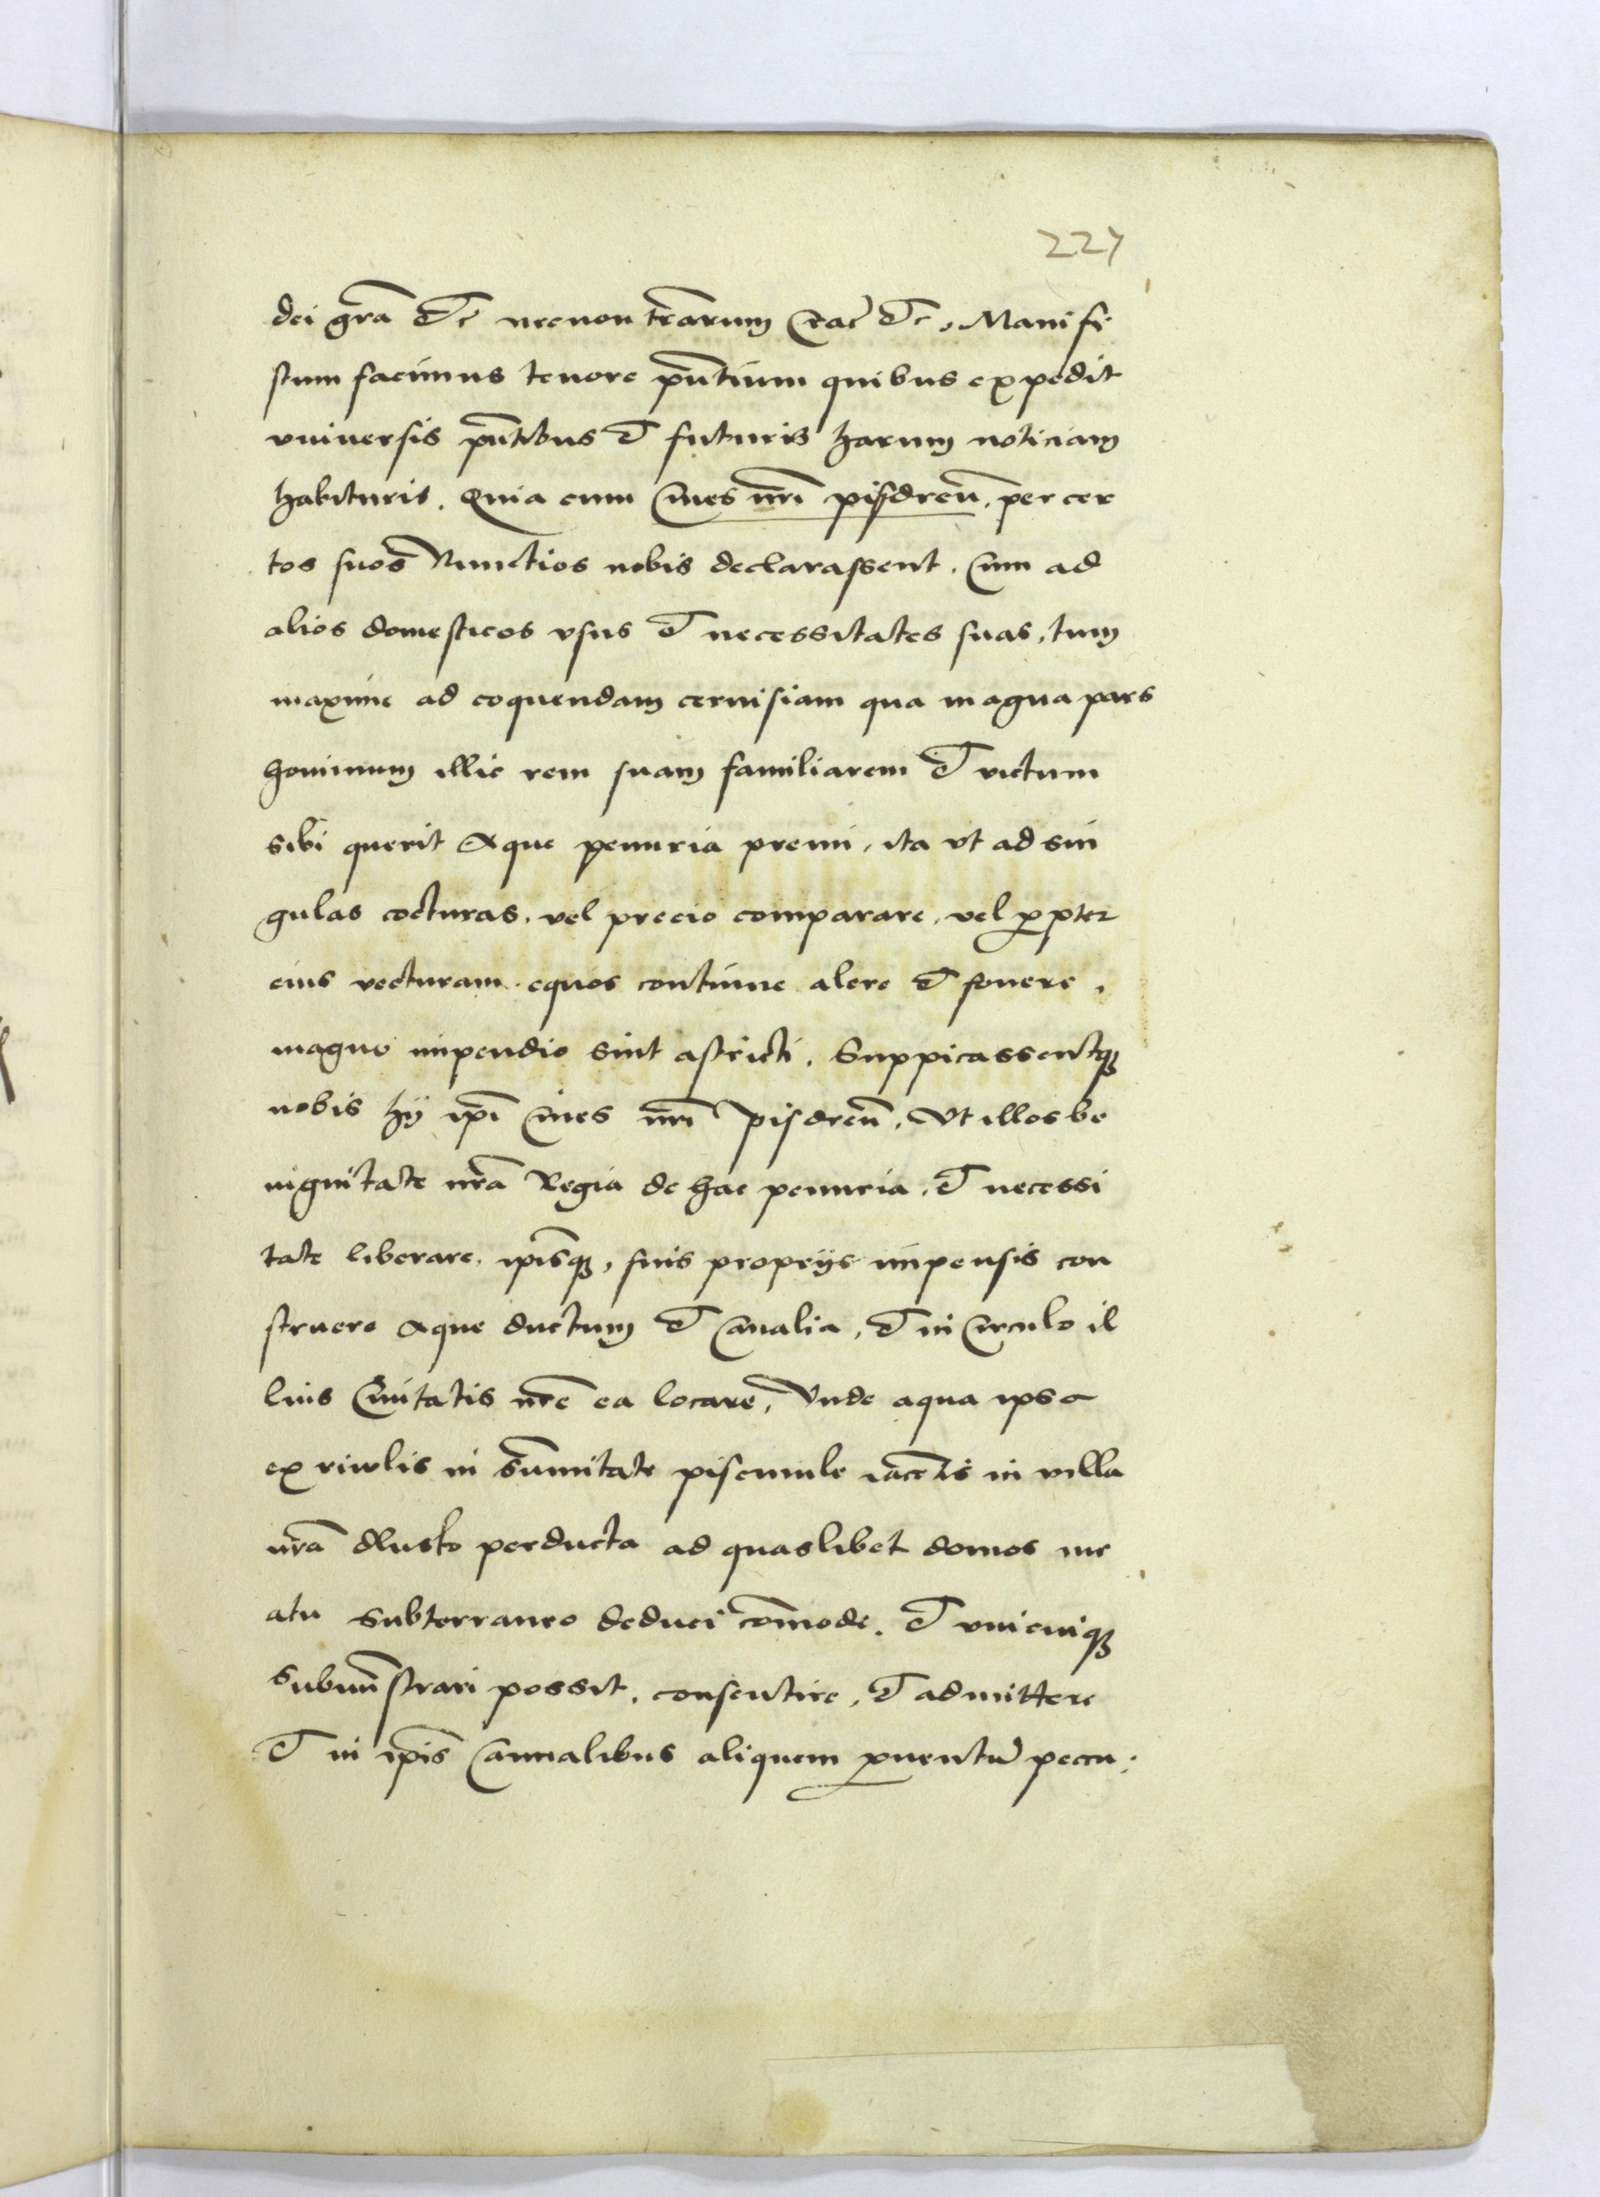 227
dei gr̃a &c necnon tr̃arum Crac̃ &c, Manife
stum facimus tenore pñtium quibus expedit
vniuersis pñtibus & futuris harum noticiam
habituris. Quia cum Ciues nr̃i pisdreñ. per cer
tos suos Nunctios nobis declarassent. Cum ad
alios domesticos vsus & necessitates suas, tum
maxime ad coquendam ceruisiam qua magna pars
hominum illic rem suam familiarem & victum
sibi querit Aque penuria premi, ita vt ad sin
gulas cocturas. vel precio comparare, vel ꝓpter
eius vecturam equos continue alere & fouere,
magno impendio sint astricti. Suppicassentqꝫ
nobis hij ip̃i Ciues nr̃i Pisdreñ. Vt illos be
nignitate nr̃a Regia de hac penuria. & necessi
tate liberare. ip̃isqꝫ, suis proprijs impensis con
struere Aque ductum & Canalia, & in Circulo il
lius Ciuitatis nr̃e ea locare, Vnde aqua ipsa
ex riwlis in sum̃itate piscinule iacen̄tis in villa
nr̃a dlusko perducta ad quaslibet domos me
atu subterraneo deduci com̃ode. & vnicuiqꝫ
submĩstrari possit, consentire, & admittere
& in ip̃is Cannalibus aliquem ꝓuentũ pecu: